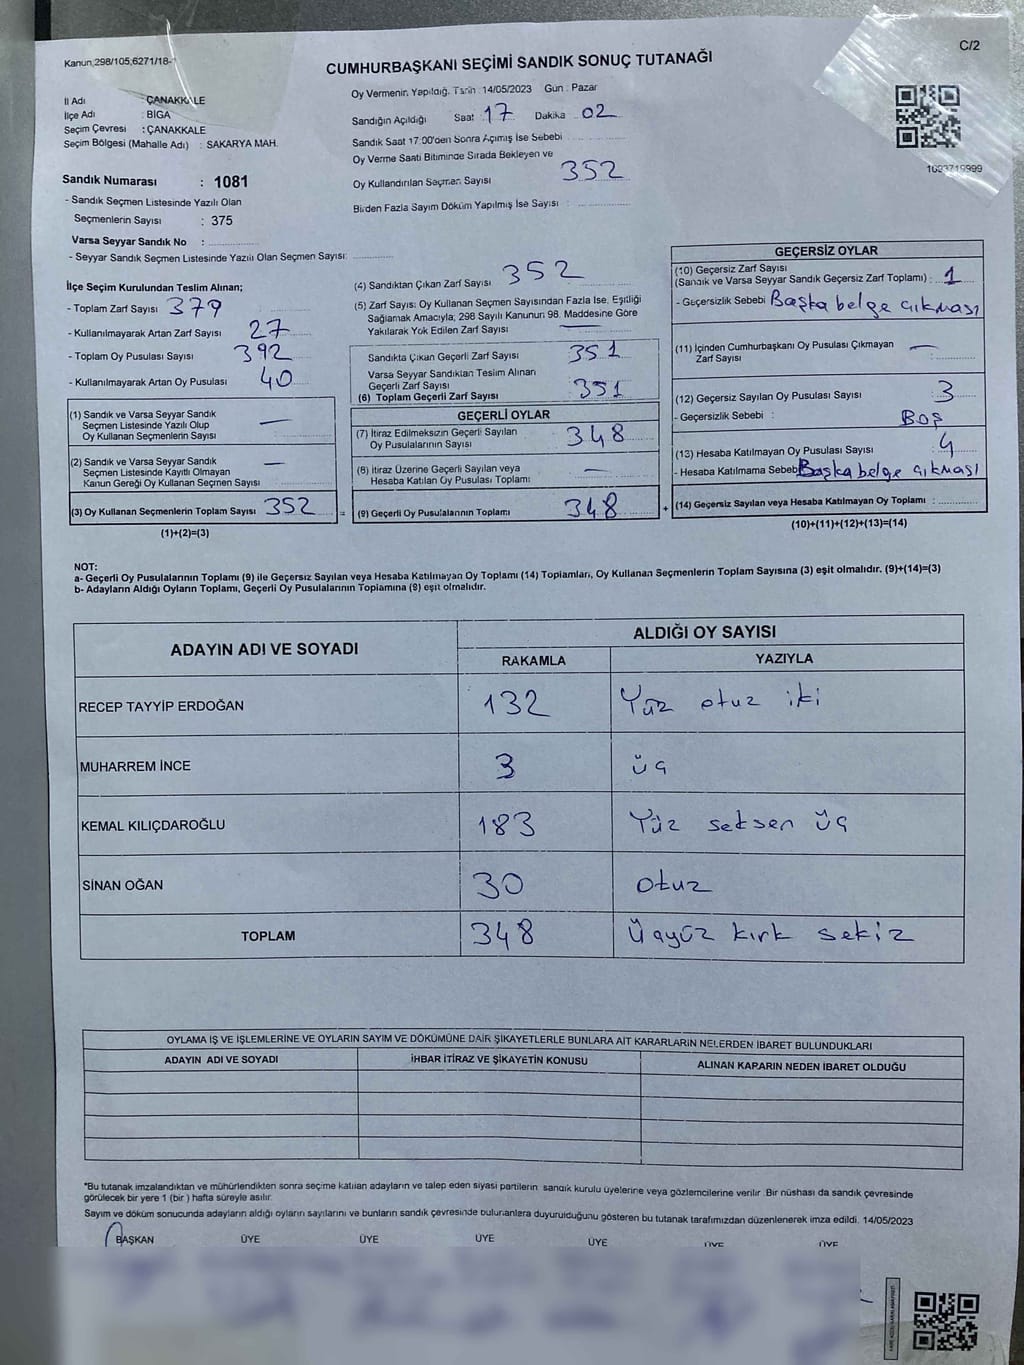 Kanun;298/105,6271/18-
C/2
CUMHURBAŞKANI SEÇİMİ SANDIK SONUÇ TUTANAĞI
İl Adı : ÇANAKKALE
İlçe Adı : BİGA
Seçim Çevresi : ÇANAKKALE
Seçim Bölgesi (Mahalle Adı) : SAKARYA MAH.
Oy Vermenin Yapıldığı Tarih : 14/05/2023 Gün : Pazar
Sandığın Açıldığı Saat : 17 Dakika : 02
Sandık Saat 17:00'den Sonra Açımış İse Sebebi :
Oy Verme Saati Bitiminde Sırada Bekleyen ve
Oy Kullandırılan Seçmen Sayısı 352
Birden Fazla Sayım Döküm Yapılmış İse Sayısı :
Sandık Numarası : 1081
- Sandık Seçmen Listesinde Yazılı Olan
Seçmenlerin Sayısı : 375
Varsa Seyyar Sandık No :
- Seyyar Sandık Seçmen Listesinde Yazılı Olan Seçmen Sayısı:
İlçe Seçim Kurulundan Teslim Alınan;
- Toplam Zarf Sayısı 379
- Kullanılmayarak Artan Zarf Sayısı 27
- Toplam Oy Pusulası Sayısı 392
- Kullanılmayarak Artan Oy Pusulası 40
(1) Sandık ve Varsa Seyyar Sandık
Seçmen Listesinde Yazılı Olup
Oy Kullanan Seçmenlerin Sayısı —
(2) Sandık ve Varsa Seyyar Sandık
Seçmen Listesinde Kayıtlı Olmayan
Kanun Gereği Oy Kullanan Seçmen Sayısı —
(3) Oy Kullanan Seçmenlerin Toplam Sayısı 352 =
(1)+(2)=(3)
(4) Sandıktan Çıkan Zarf Sayısı 352
(5) Zarf Sayısı; Oy Kullanan Seçmen Sayısından Fazla İse, Eşitliği
Sağlamak Amacıyla; 298 Sayılı Kanunun 98. Maddesine Göre
Yakılarak Yok Edilen Zarf Sayısı —
Sandıkta Çıkan Geçerli Zarf Sayısı 351
Varsa Seyyar Sandıktan Teslim Alınan
Geçerli Zarf Sayısı
(6) Toplam Geçerli Zarf Sayısı 351
GEÇERLİ OYLAR
(7) İtiraz Edilmeksizin Geçerli Sayılan
Oy Pusulalarının Sayısı 348
(8) İtiraz Üzerine Geçerli Sayılan veya
Hesaba Katılan Oy Pusulası Toplamı —
(9) Geçerli Oy Pusulalarının Toplamı 348 +
GEÇERSİZ OYLAR
(10) Geçersiz Zarf Sayısı
(Sandık ve Varsa Seyyar Sandık Geçersiz Zarf Toplamı) : 1
- Geçersizlik Sebebi Başka belge çıkması
(11) İçinden Cumhurbaşkanı Oy Pusulası Çıkmayan
Zarf Sayısı —
(12) Geçersiz Sayılan Oy Pusulası Sayısı 3
- Geçersizlik Sebebi : BOŞ
(13) Hesaba Katılmayan Oy Pusulası Sayısı 4
- Hesaba Katılmama Sebebi Başka belge çıkması
(14) Geçersiz Sayılan veya Hesaba Katılmayan Oy Toplamı :
(10)+(11)+(12)+(13)=(14)
NOT:
a- Geçerli Oy Pusulalarının Toplamı (9) ile Geçersiz Sayılan veya Hesaba Katılmayan Oy Toplamı (14) Toplamları, Oy Kullanan Seçmenlerin Toplam Sayısına (3) eşit olmalıdır. (9)+(14)=(3)
b- Adayların Aldığı Oyların Toplamı, Geçerli Oy Pusulalarının Toplamına (9) eşit olmalıdır.
ADAYIN ADI VE SOYADI ALDIĞI OY SAYISI
RAKAMLA YAZIYLA
RECEP TAYYİP ERDOĞAN 132 Yüz otuz iki
MUHARREM İNCE 3 üç
KEMAL KILIÇDAROĞLU 183 Yüz seksen üç
SİNAN OĞAN 30 otuz
TOPLAM 348 Üçyüz kırk sekiz
OYLAMA İŞ VE İŞLEMLERİNE VE OYLARIN SAYIM VE DÖKÜMÜNE DAİR ŞİKAYETLERLE BUNLARA AİT KARARLARIN NELERDEN İBARET BULUNDUKLARI
ADAYIN ADI VE SOYADI İHBAR İTİRAZ VE ŞİKAYETİN KONUSU ALINAN KARARIN NEDEN İBARET OLDUĞU
*Bu tutanak imzalandıktan ve mühürlendikten sonra seçime katılan adayların ve talep eden siyasi partilerin sandık kurulu üyelerine veya gözlemcilerine verilir. Bir nüshası da sandık çevresinde
görülecek bir yere 1 (bir ) hafta süreyle asılır.
Sayım ve döküm sonucunda adayların aldığı oyların sayılarını ve bunların sandık çevresinde bulunanlara duyurulduğunu gösteren bu tutanak tarafımızdan düzenlenerek imza edildi. 14/05/2023
BAŞKAN ÜYE ÜYE ÜYE ÜYE ÜYE ÜYE